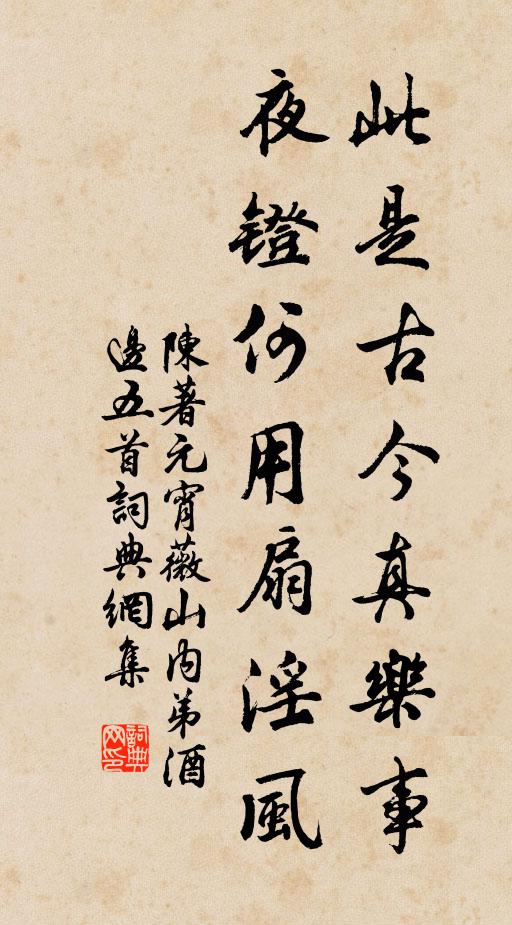 此是古今真樂事
夜鐙何用扇淫風
陳著元宵薇山内弟酒
邊五首詞典網集
詞典网印